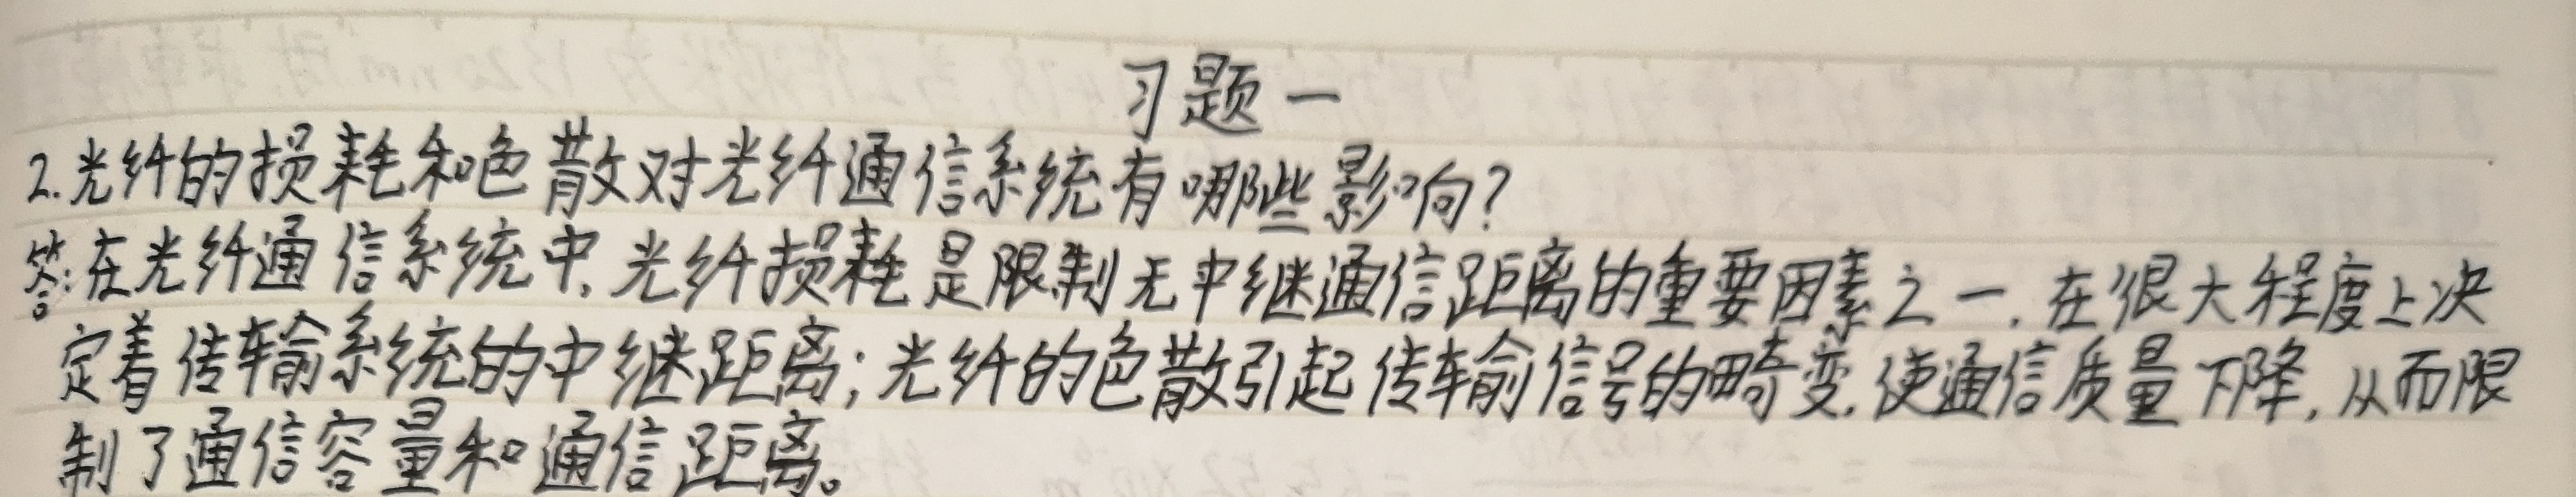 习题一
2.光纤的损耗和色散对光纤通信系统有哪些影响?
答:在光纤通信系统中,光纤损耗是限制无中继通信距离的重要因素之一,在很大程度上决
定着传输系统的中继距离;光纤的色散引起传输信号的畸变,使通信质量下降,从而限
制了通信容量和通信距离。